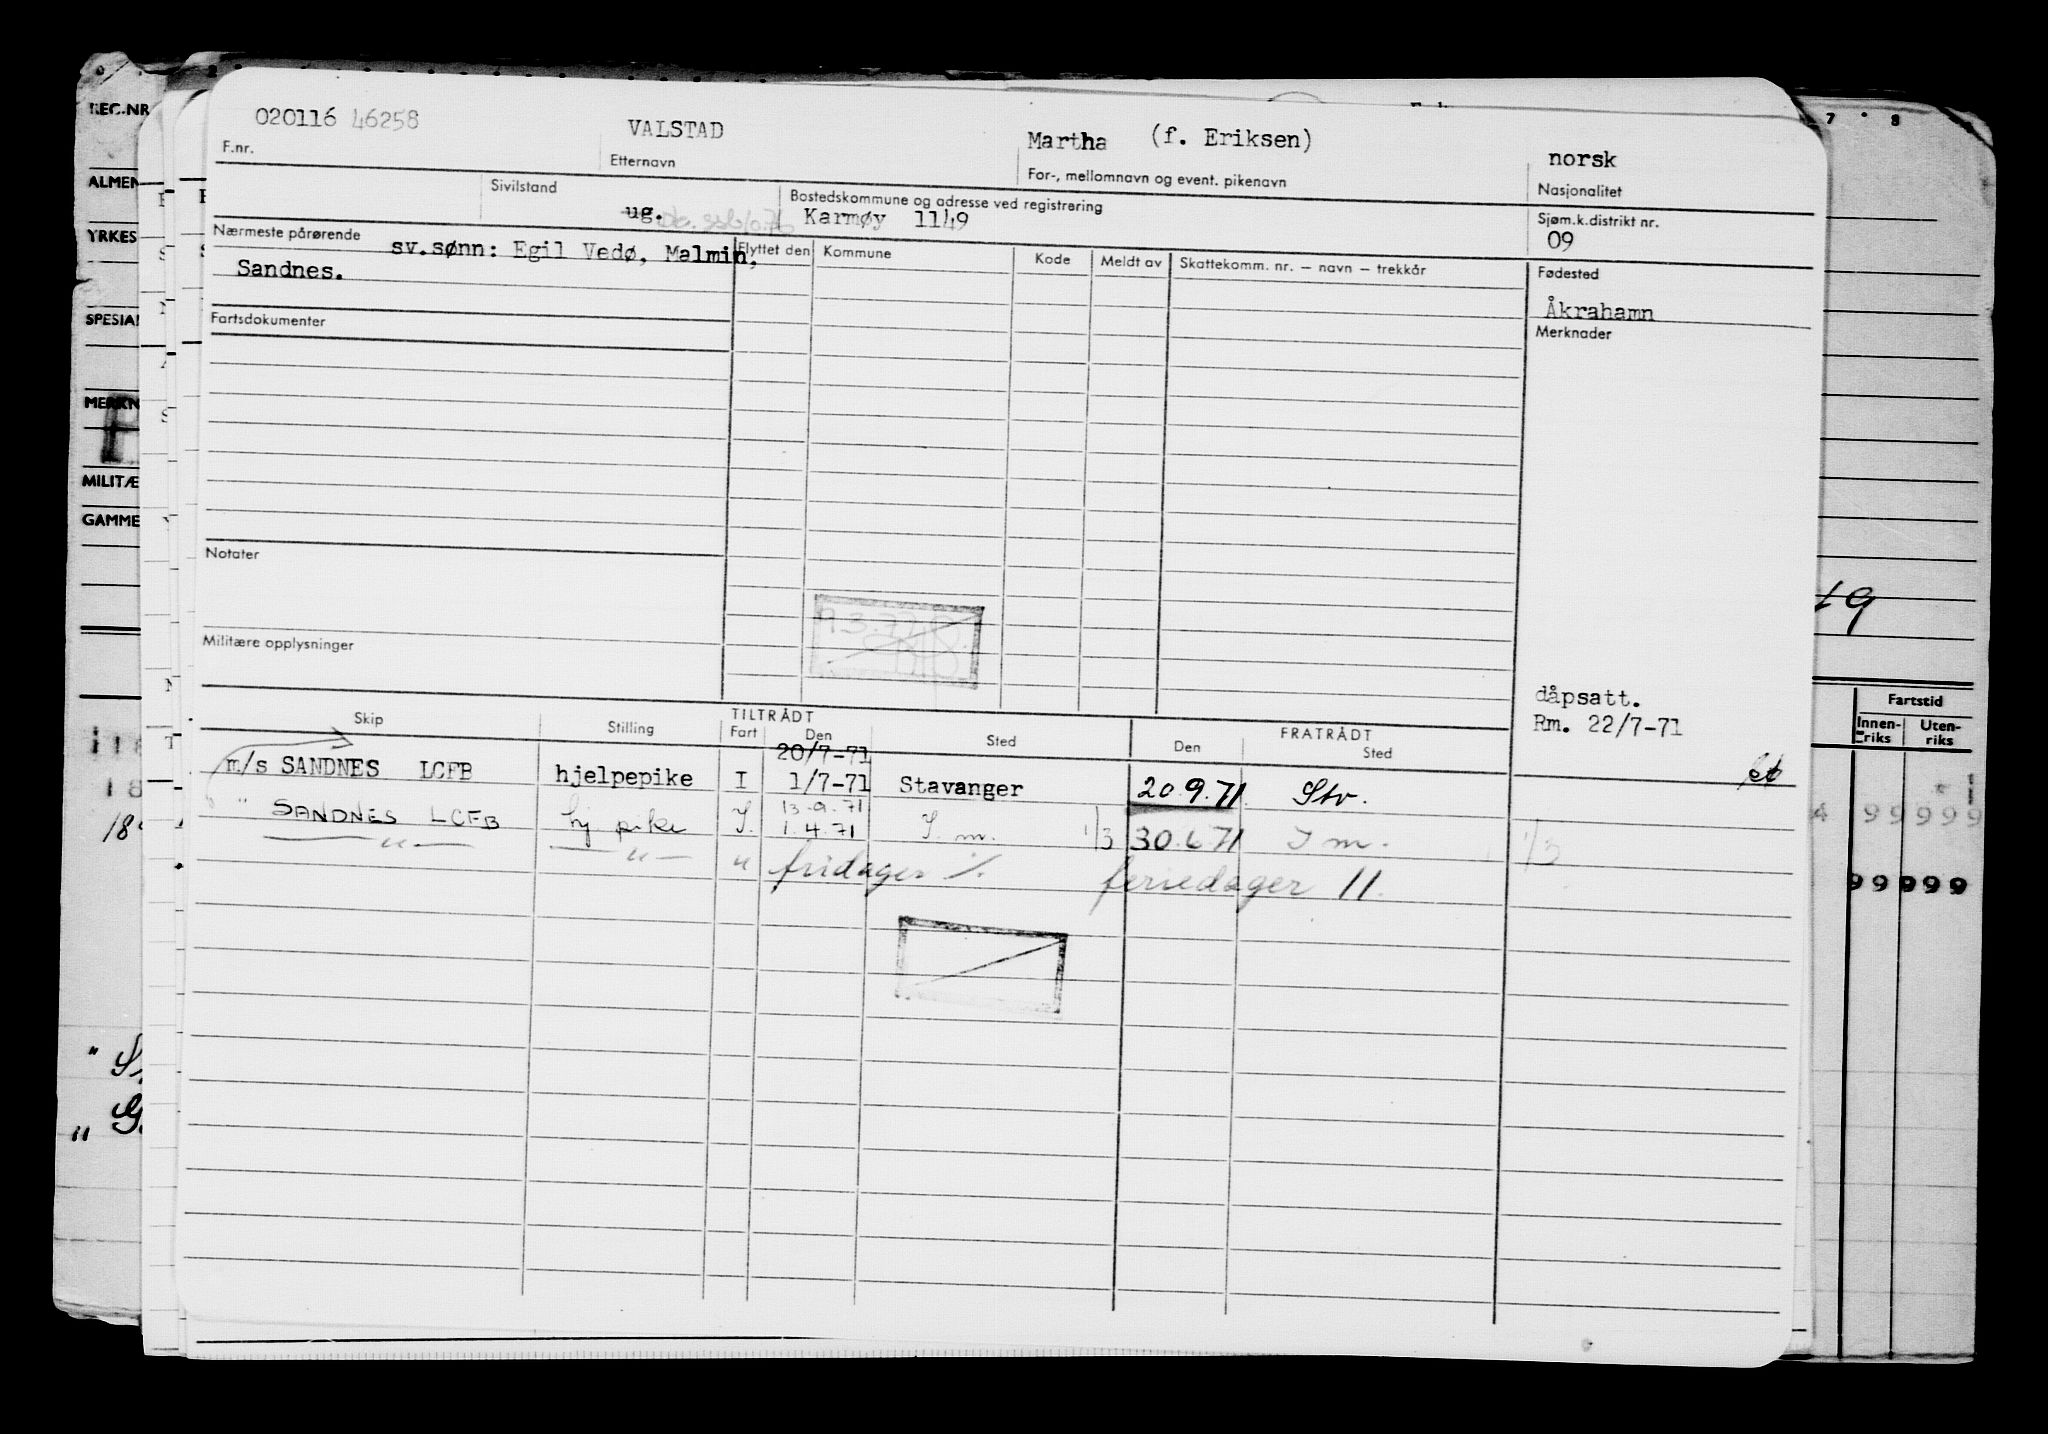 REG.NR
ALMEN
YRKES
SPESIAL
MERKN
MILITÆ
GAMME
020116 46258
VALSTAD
Martha (f. Eriksen)
norsk
F.nr.
Etternavn
For-, mellomnavn og event. pikenavn
Nasjonalitet
Sivilstand
ug.
Bostedskommune og adresse ved registrering
Karmøy 1149
Sjøm.k.distrikt nr.
09
Nærmeste pårørende
sv.sønn: Egil Vedø, Malmin,
Sandnes.
Flyttet den
Kommune
Kode
Meldt av
Skattekomm. nr. – navn – trekkår
Fødested
Åkrahamn
Fartsdokumenter
Merknader
Notater
Militære opplysninger
dåpsatt.
Rm. 22/7-71
Skip
Stilling
TILTRÅDT
Fart
Den
Sted
FRATRÅDT
Den
Sted
20/7-71
m/s SANDNES LCFB hjelpepike I 1/7-71 Stavanger 20.9.71. Stv.
13.9.71
" " SANDNES LCFB hj pike I. 1.4.71 I. m. 1/3 30.6.71 I m. 1/3
" " " fridager ./. feriedager 11.
7 8
19
Fartstid
Innen-
riks
Uten-
riks
4 99 999
99 999